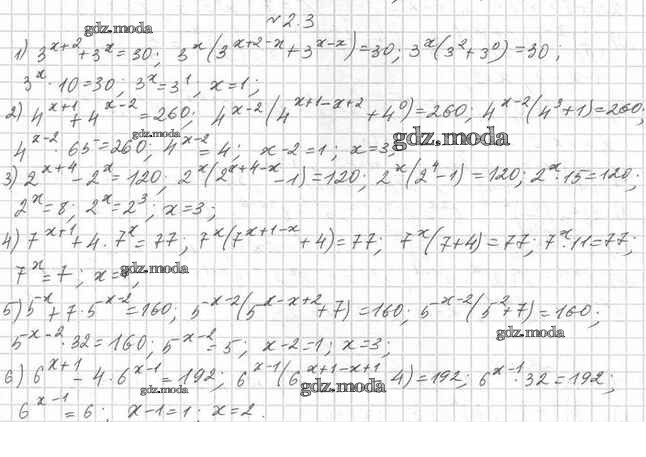 № 2.3
gdz.moda
1) 3^{x+2} + 3^x = 30; 3^x(3^{x+2-x} + 3^{x-x}) = 30; 3^x(3^2 + 3^0) = 30;
3^x · 10 = 30; 3^x = 3^1; x = 1;
2) 4^{x+1} + 4^{x-2} = 260; 4^{x-2}(4^{x+1-x+2} + 4^0) = 260; 4^{x-2}(4^3 + 1) = 260;
gdz.moda gdz.moda
4^{x-2} · 65 = 260; 4^{x-2} = 4; x-2 = 1; x = 3;
3) 2^{x+4} - 2^x = 120; 2^x(2^{x+4-x} - 1) = 120; 2^x(2^4 - 1) = 120; 2^x · 15 = 120;
2^x = 8; 2^x = 2^3; x = 3;
4) 7^{x+1} + 4 · 7^x = 77; 7^x(7^{x+1-x} + 4) = 77; 7^x(7+4) = 77; 7^x · 11 = 77;
7^x = 7; x = ;
gdz.moda
5) 5^x + 7 · 5^{x-2} = 160; 5^{x-2}(5^{x-x+2} + 7) = 160; 5^{x-2}(5^2 + 7) = 160;
gdz.moda
5^{x-2} · 32 = 160; 5^{x-2} = 5; x-2 = 1; x = 3;
6) 6^{x+1} - 4 · 6^{x-1} = 192; 6^{x-1}(6^{x+1-x+1} 4) = 192; 6^{x-1} · 32 = 192;
gdz.moda gdz.moda
6^{x-1} = 6; x-1 = 1; x = 2.